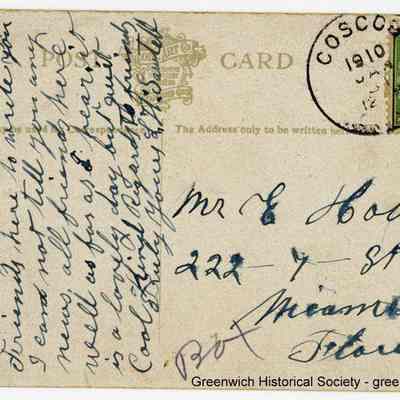 POST CARD
COSCOB
1910
The Address only to be written here
Friends here to write you
I can not tell you any
news all friends here
well as far as I hear it
is a lovely day but quit
Cool Kind Regards to friends
Truly Yours
Mr E Ho
222-7-St
Miami
Flor
Box
Greenwich Historical Society - gree